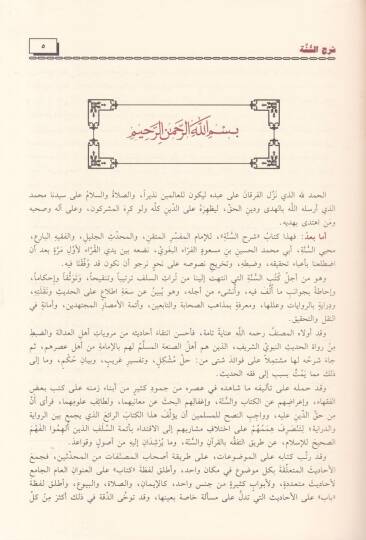 شرح السُّنَّة
٥
بسم الله الرحمن الرحيم
الحمد لله الذي نزّل الفرقان على عبده ليكون للعالمين نذيراً، والصلاة والسلام على سيدنا محمد
الذي أرسله الله بالهدى ودين الحق، ليظهره على الدين كله ولو كره المشركون، وعلى آله وصحبه
ومن اهتدى بهديه.
أما بعد: فهذا كتاب «شرح السنّة»، للإمام المفسّر المتقن، والمحدّث الجليل، والفقيه البارع،
محيي السنّة، أبي محمد الحسين بن مسعود الفرّاء البغوي، نضعه بين يدي القرّاء لأول مرّة بعد أن
اضطلعنا بأعباء تحقيقه، وضبطه، وتخريج نصوصه على نحو نرجو أن نكون قد وُفّقنا فيه.
وهو من أجلّ كتب السنّة التي انتهت إلينا من تراث السلف ترتيباً وتنقيحاً، وتوثّقاً وإحكاماً،
وإحاطة بجوانب ما أُلّف فيه، وأُنشىء من أجله، وهو يُبين عن سعة اطلاع على الحديث ونَقَلَتِه،
ودراية بالروايات وعللها، ومعرفة بمذاهب الصحابة والتابعين، وأئمة الأمصار المجتهدين، وأمانة في
النقل والتحقيق.
وقد أولاه المصنف رحمه الله عناية تامة، فأحسن انتقاء أحاديثه من مرويات أهل العدالة والضبط
من رواة الحديث النبوي الشريف، الذين هم أهل الصنعة المسلَّم لهم بالإمامة من أهل عصرهم، ثم
جاء شرحه لها مشتملاً على فوائد شتى من: حلّ مُشكل، وتفسير غريب، وبيان حكم، وما إلى
ذلك مما يمُتّ بسبب إلى فقه الحديث.
وقد حمله على تأليفه ما شاهده في عصره من جمود كثير من أبناء زمنه على كتب بعض
الفقهاء، وإعراضهم عن الكتاب والسنّة، وإغفالهم البحث عن معانيهما، ولطائف علومهما، فرأى أنّ
من حقّ الدين عليه، وواجب النصح للمسلمين أن يؤلّف هذا الكتاب الرائع الذي يجمع بين الرواية
والدراية؛ لتنصرف هممهم على اختلاف مشاربهم إلى الاقتداء بأئمة السلف الذين ألهموا الفهم
الصحيح للإسلام، عن طريق التفقّه بالقرآن والسنّة، وما يُرشدان إليه من أصول وقواعد.
وقد رتّب كتابه على الموضوعات، على طريقة أصحاب المصنّفات من المحدّثين، فجمع
الأحاديث المتعلّقة بكل موضوع في مكان واحد، وأطلق لفظة «كتاب» على العنوان العام الجامع
لأحاديث متعددة، ولأبواب كثيرة من جنس واحد، كالإيمان، والصلاة، والبيوع، وأطلق لفظة
«باب» على الأحاديث التي تدلّ على مسألة خاصة بعينها، وقد توخّى الدقة في ذلك أكثر من كلّ